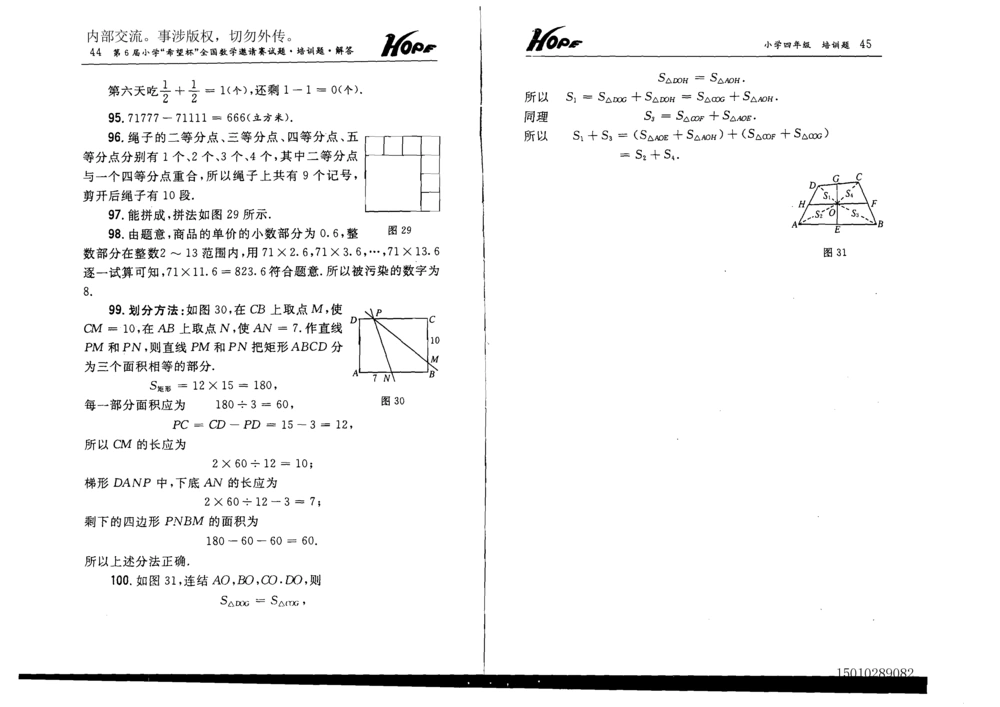 内部交流。事涉版权，切勿外传。
44 第6届小学“希望杯”全国数学邀请赛试题·培训题·解答
HOPE
第六天吃1/2+1/2=1(个),还剩1-1=0(个).
95.71777-71111=666(立方米).
96.绳子的二等分点、三等分点、四等分点、五
等分点分别有1个、2个、3个、4个,其中二等分点
与一个四等分点重合,所以绳子上共有9个记号,
剪开后绳子有10段.
97.能拼成,拼法如图29所示.
图29
98.由题意,商品的单价的小数部分为0.6,整
数部分在整数2~13范围内,用71×2.6,71×3.6,…,71×13.6
逐一试算可知,71×11.6=823.6符合题意.所以被污染的数字为
8.
99.划分方法:如图30,在CB上取点M,使
CM=10,在AB上取点N,使AN=7.作直线
PM和PN,则直线PM和PN把矩形ABCD分
为三个面积相等的部分.
D P C
10
M
A 7 N B
图30
S矩形=12×15=180,
每一部分面积应为 180÷3=60,
PC=CD-PD=15-3=12,
所以CM的长应为
2×60÷12=10;
梯形DANP中,下底AN的长应为
2×60÷12-3=7;
剩下的四边形PNBM的面积为
180-60-60=60.
所以上述分法正确.
100.如图31,连结AO,BO,CO.DO,则
S△DOG=S△COG,
HOPE
小学四年级 培训题 45
S△DOH=S△AOH.
所以 S1=S△DOG+S△DOH=S△COG+S△AOH.
同理 S3=S△COF+S△AOE.
所以 S1+S3=(S△AOE+S△AOH)+(S△COF+S△COG)
=S2+S4.
D G C
S1 S4
H F
S2 O S3
A E B
图31
15010289082